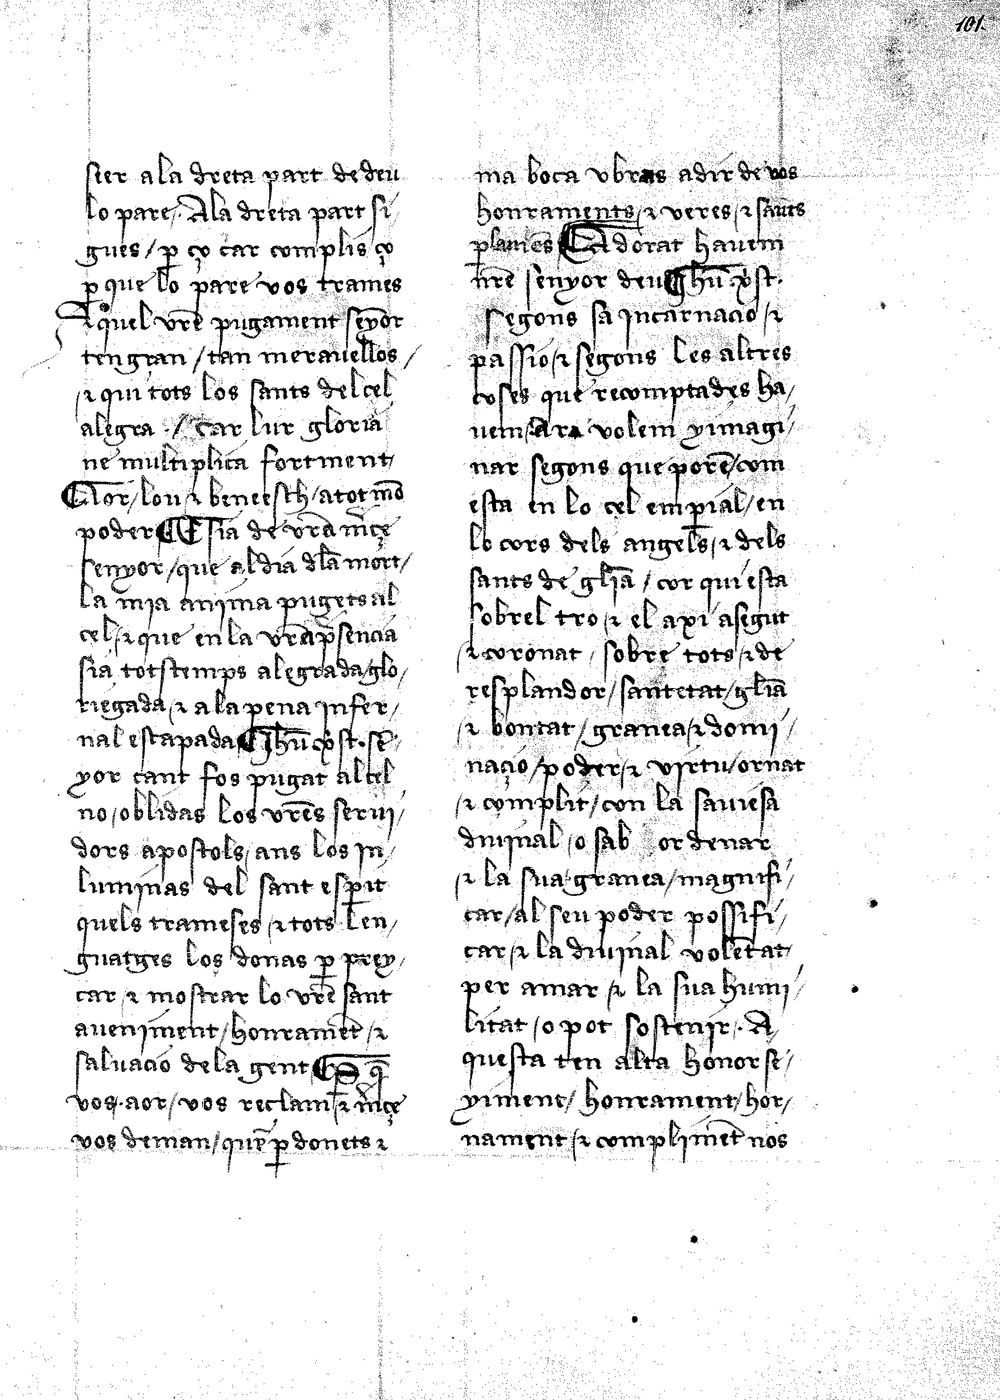 101.
ster a la dreta part de deu
lo pare /. A la dreta part si/
gues / ꝑ ço car complis ço
ꝑ que lo pare vos trames
Aquel vr̄e pugament seyor
ten gran / tan merauellos /
⁊ qui tots los sants del cel
alegra ./ car lur gloria
ne multiplica fortment
Aor / lou ⁊ beneesch / a tot mō
poder ¶ E sia de vr̄a m̄çe
senyor / que al dia dla mort /
la mia anima puget sal
cel / ⁊ que en la vr̄a p̄sencia
sia totstemps alegrada / glo /
riegada / ⁊ a la pena infer /
nal escapada ¶ Jhū xp̄st . se /
yor cant fos pugat al cel
no / oblidas los vr̄es serui /
dors apostols / ans los in /
luminas del sant esꝑit
quels trameses / ⁊ tots len /
guatges los donas ꝑ prey /
car / ⁊ mostrar lo vr̄e sant
aueniment / honramēt / ⁊
saluacio de la gent ¶ S q̄
vos . aor / vos reclam / ⁊ m̄çe
vos deman / quē ꝑdonets ⁊
ma boca vbras a dir de vos
honraments / ⁊ veres / ⁊ sants
ꝑlamēs ¶ Adorat hauem
nr̄e senyor deu Jhū xp̄st .
segons sa incarnacio / ⁊
passio / ⁊ segons les altres
coses que recomptades ha /
uem / Ara volem yimagi /
nar segons que porē / com
esta en lo cel emꝑial / en
lo cors dels angels / ⁊ dels
sants de gl̄ia / cor qui esta
sobrel tro / ⁊ el axi asegut
⁊ coronat / sobre tots / ⁊ de
resplandor / santetat / gl̄ia
⁊ bontat / granea / ⁊ domi /
nacio / poder / ⁊ virtu / ornat
⁊ complit / con la sauiesa
diuinal / o sab ordenar
⁊ la sua granea / magnifi /
car / al seu poder possifi /
car / ⁊ la diuinal volētat
per amar / ⁊ la sua humi /
litat / o pot sostenir . A
questa ten alta honor se /
yiment / honrament / hor /
nament / ⁊ complimēt nos